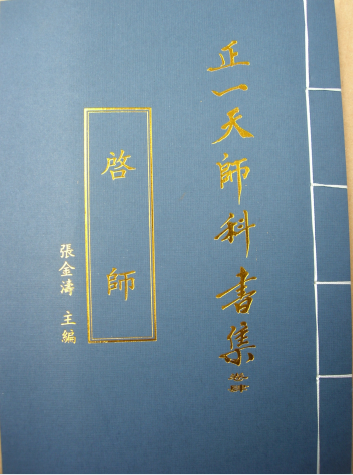 正一天師科書集
啓師
張金濤 主編